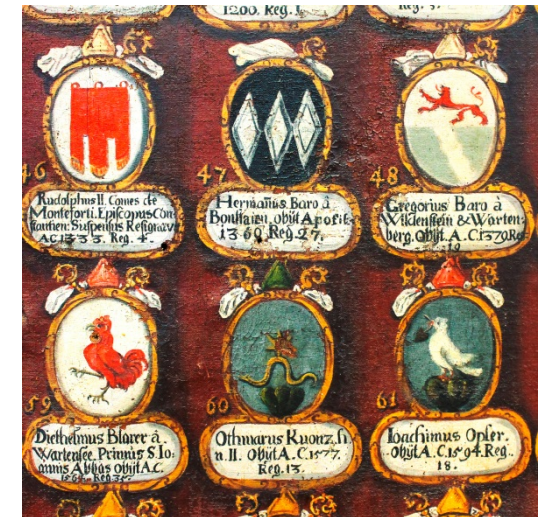 1200. Reg. 1
Reg. 5.
46
Rudolphus II. Comes de
Monteforti. Episcopus Con-
stantien: Suspensus Resignavit
A.C. 1333. Reg. 4.
47
Hermañus Baro â
Bonstaten. obijt A. post
1360 Reg 27.
48
Gregorius Baro â
Wildenstein & Warten-
berg. Obijt. A. C. 1379 Re
19
59
Diethelmus Blarer â
Wartensee. Primus S. Jo-
annis Abbas obijt A.C.
1564. Reg. 35.
60
Othmarus Kuonz.
n. II. Obijt A. C. 1577.
Reg. 13.
61
Joachimus Opser.
Obijt A. C. 1594. Reg.
18.